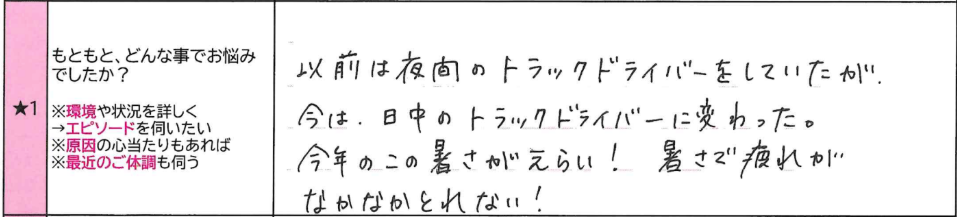 ★1
もともと、どんな事でお悩み
でしたか？
※環境や状況を詳しく
→エピソードを伺いたい
※原因の心当たりもあれば
※最近のご体調も伺う
以前は夜間のトラックドライバーをしていたが.
今は.日中のトラックドライバーに変わった。
今年のこの暑さがえらい！ 暑さで疲れが
なかなかとれない！